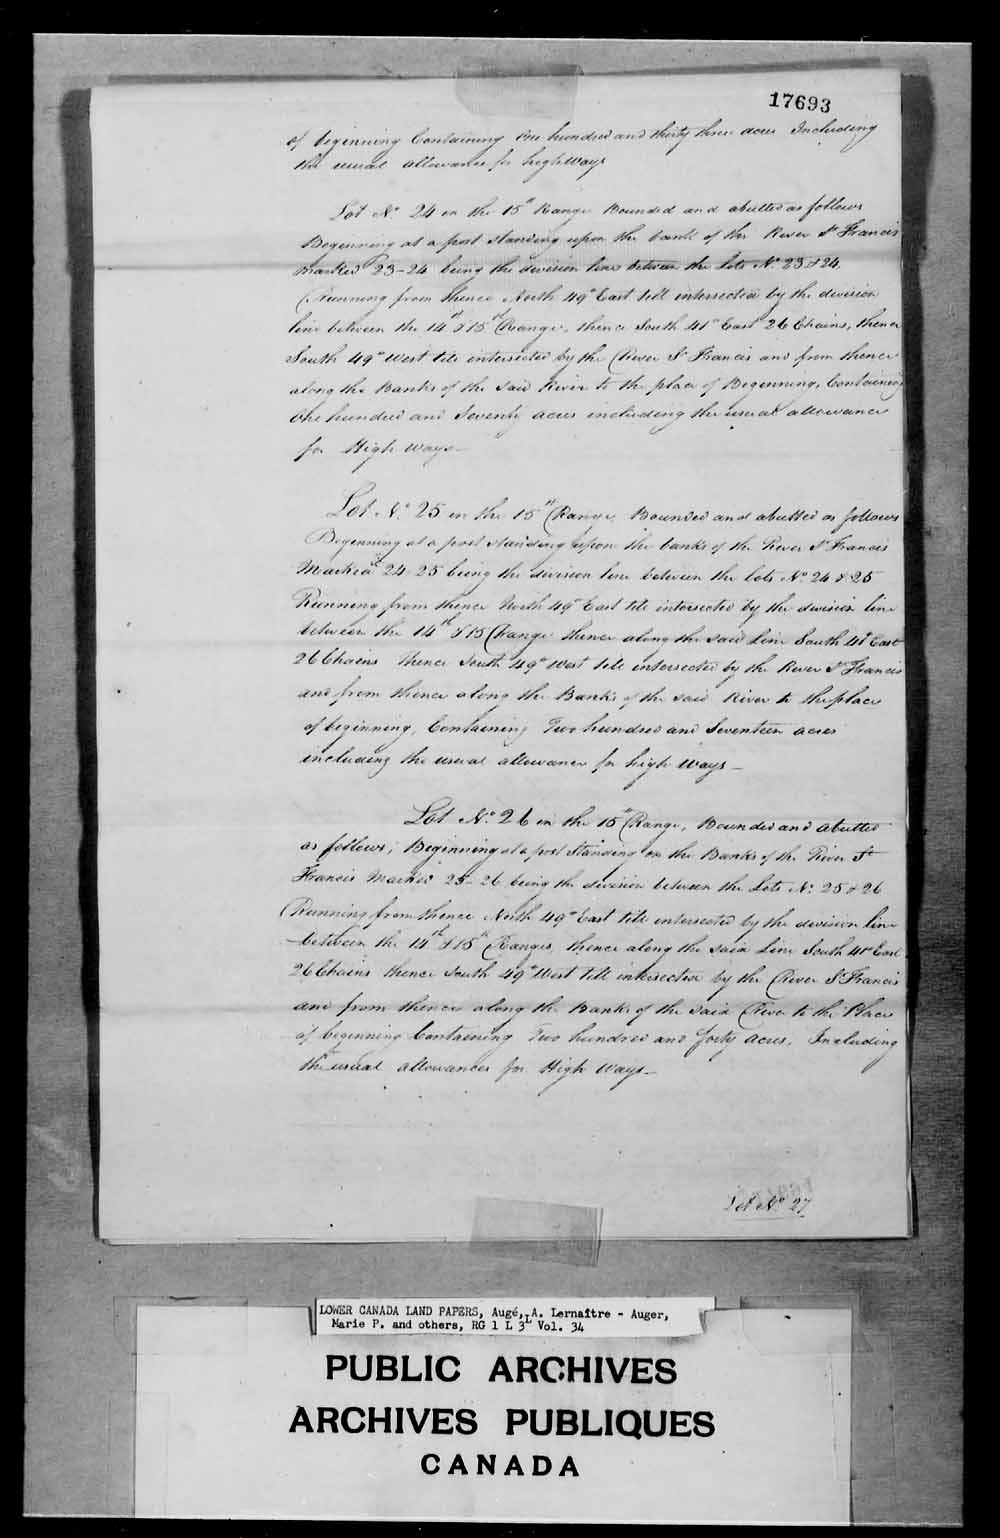 17693
of beginning Containing One hundred and thirty three acres Including
the usual allowance for highways
Lot No 24 in the 15th Range Bounded and abutted as follows
Beginning at a post standing upon the bank of the River St Francis
Marked 23-24 being the division line between the Lots No 23 & 24.
Running from thence North 49° East till intersected by the division
line between the 14th & 15th Range, thence South 41° East 26 Chains, thence
South 49° West till intersected by the River St Francis and from thence
along the Banks of the said River to the place of Beginning, Containing
One hundred and Seventy acres including the usual allowance
for High ways -
Lot No. 25 in the 15th Range, Bounded and abutted as follows
Beginning at a post standing upon the banks of the River St Francis
Marked 24-25 being the division line between the lots No 24 & 25
Running from thence North 49° East till intersected by the division line
between the 14th & 15 Range thence along the said line South 41° East
26 Chains thence South 49° West till intersected by the River St Francis
and from thence along the Banks of the said River to the place
of beginning, Containing Two hundred and Seventeen acres
including the usual allowance for high ways -
Lot No. 26 in the 15th Range, Bounded and abutted
as follows; Beginning at a post Standing on the Banks of the River St
Francis Marked 25-26 being the division between the Lots No. 25 & 26
Running from thence North 49° East till intersected by the division line
between the 14th & 15th Ranges, thence along the said Line South 41° East
26 Chains thence South 49° West till intersected by the River St Francis
and from thence along the Banks of the said River to the Place
of beginning Containing Two hundred and forty acres, Including
the usual allowances for High Ways -
Lot No 27
LOWER CANADA LAND PAPERS, Augé, A. Lernaître - Auger,
Marie P. and others, RG 1 L 3L Vol. 34
PUBLIC ARCHIVES
ARCHIVES PUBLIQUES
CANADA